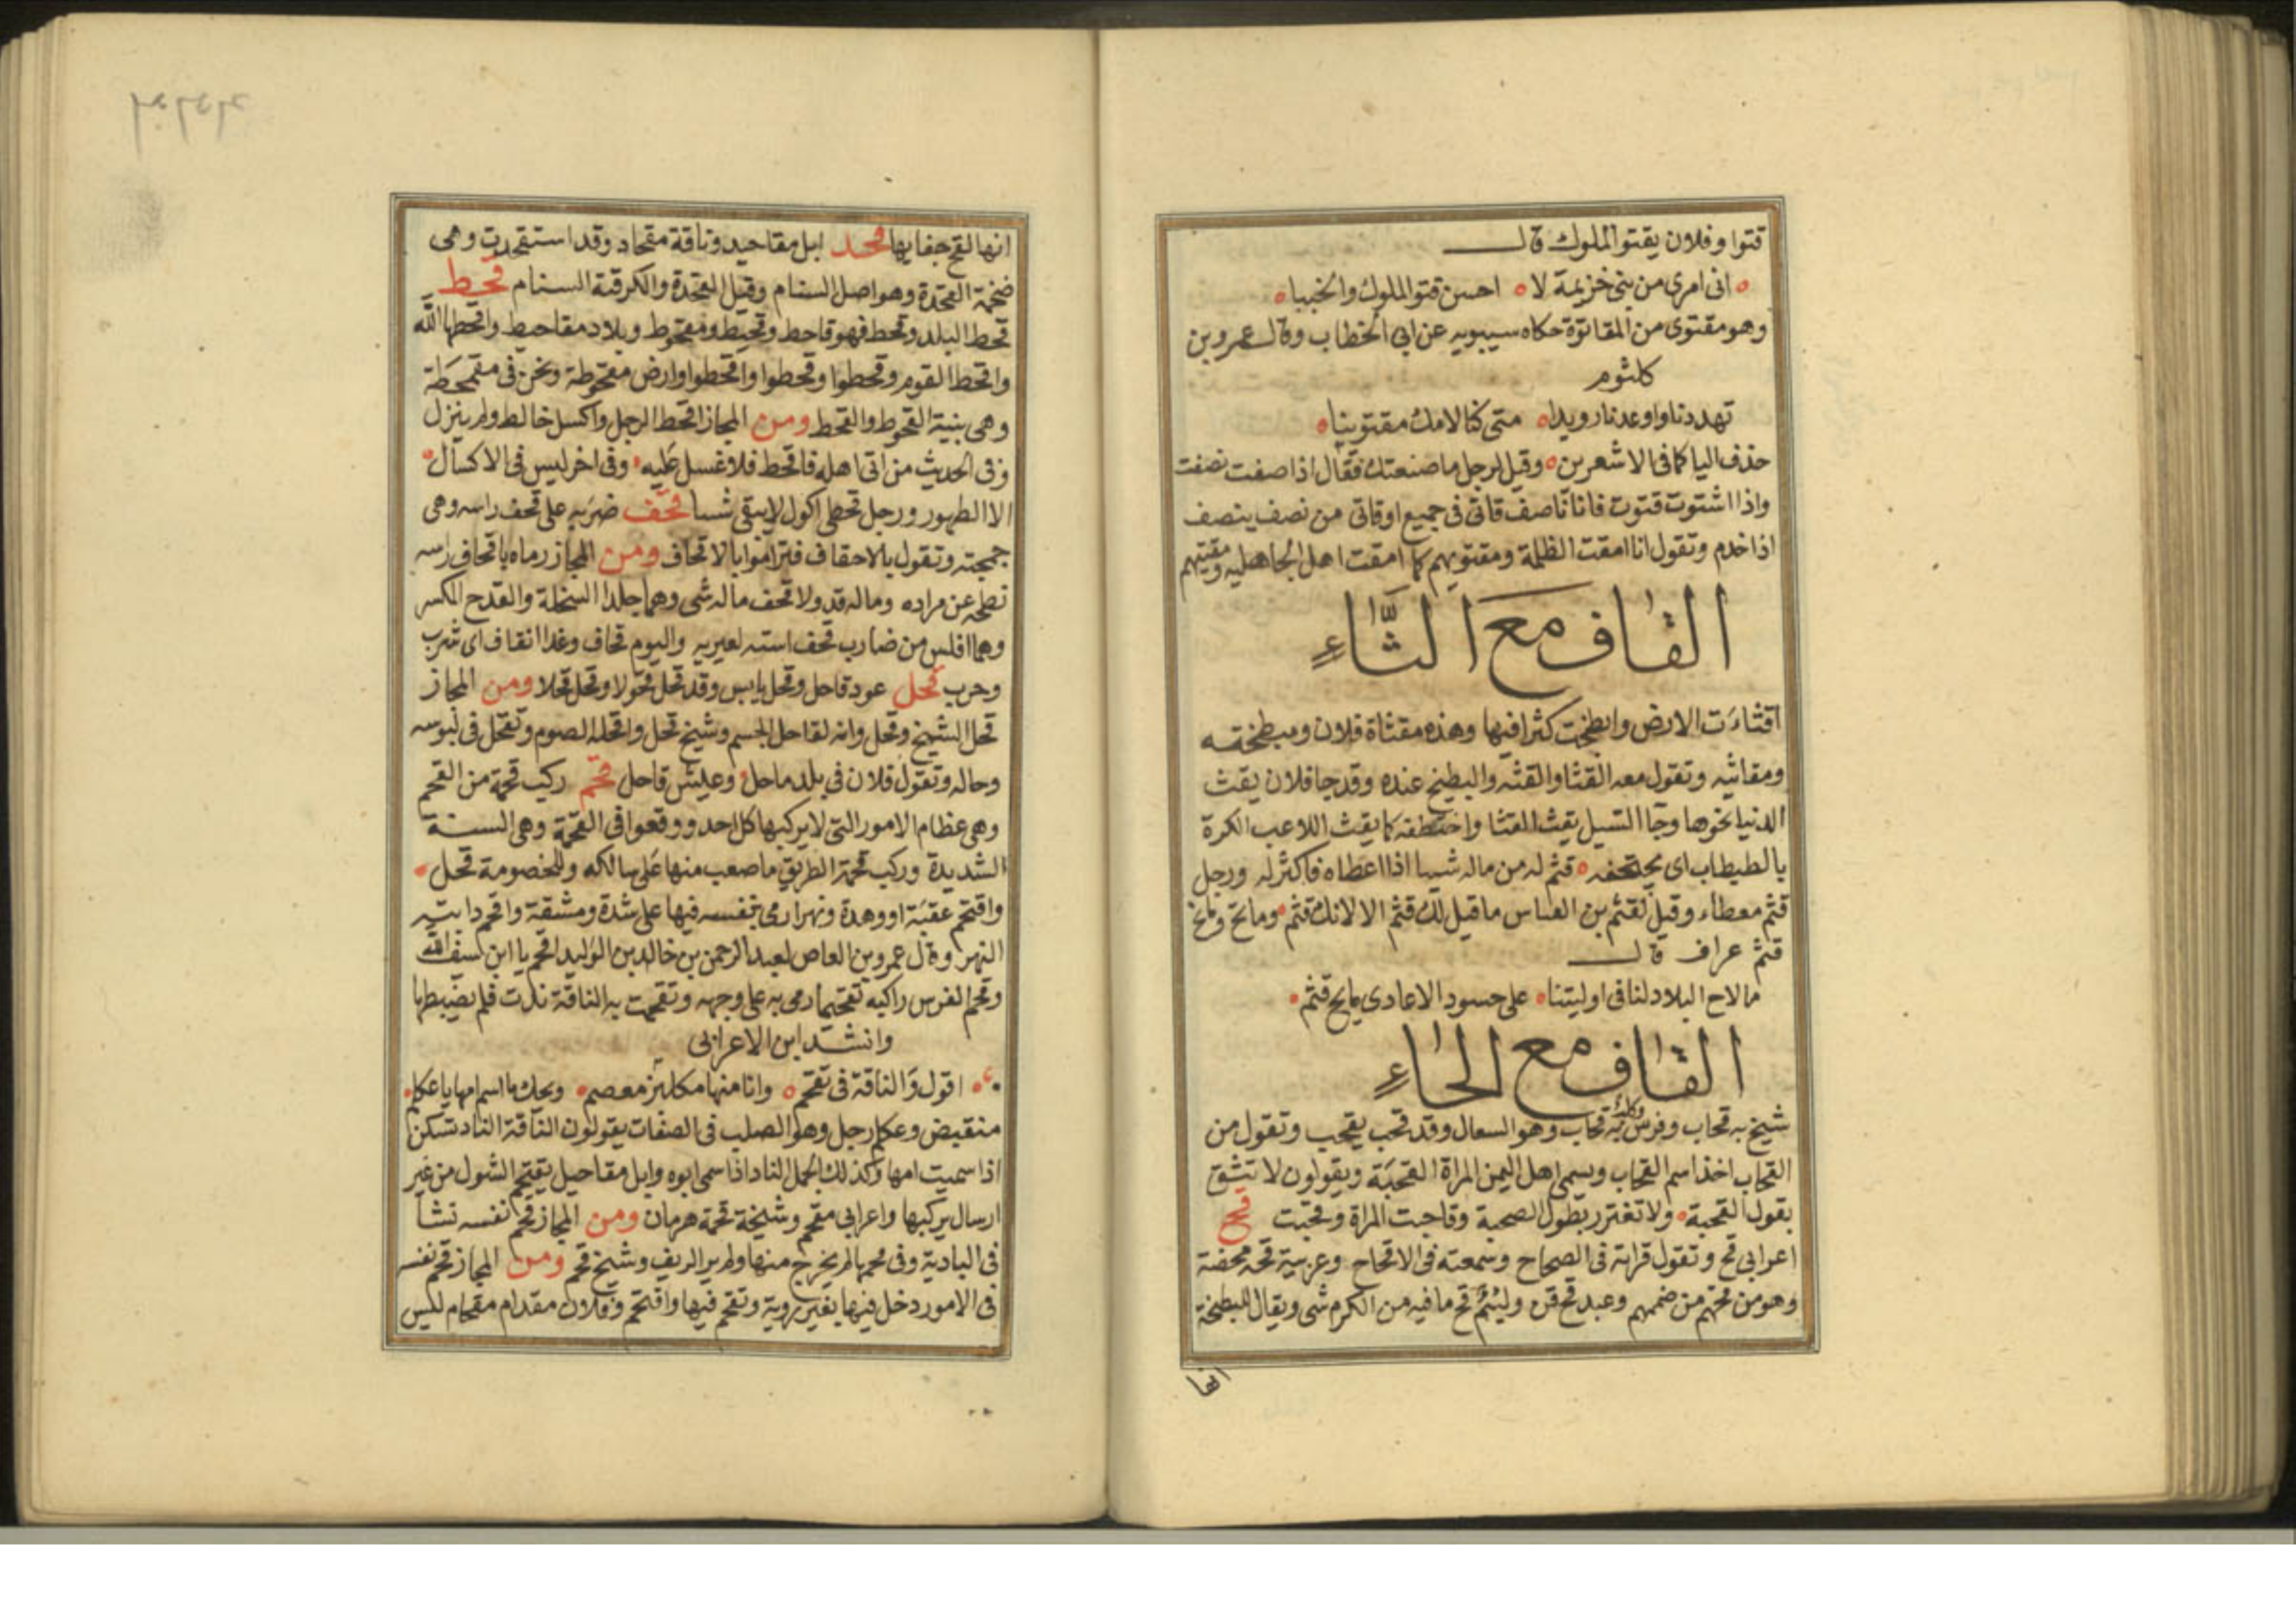 قتوا وفلان يقتو الملوك قال
انى امرى من بنى خزيمة لا احسن قتو الملوك والخببا
وهو مقتوى من المقاتوة حكاه سيبويه عن ابى الخطاب وقال عمرو بن
كلثوم
تهددنا واوعدنا رويدا متى كنا لامك مقتوينا
حذف اليا كما فى الاشعرين وقيل لرجل ما صنعتك فقال اذا صفت نصفت
واذا اشتوت قتوت فانا ناصف قاتى فى جميع اوقاتى من نصف ينصف
اذا خدم وتقول انا امقت الظلمة ومقتويهم كما امقت اهل الجاهلية ومقيتهم
القاف مع الثاء
اقثاءت الارض وابطخت كثرا فيها وهذه مقثاة فلان ومبطخته
ومقاثيه وتقول معه القثا والقثه والبطيخ عنده وقد جا فلان يقث
الدنيا نحوها وجا السيل يقث القثا واختطفه كما يقث اللاعب الكرة
بالطبطاب اى يجتحفه قثم له من ماله شيا اذا اعطاه فاكثر له ورجل
قثم معطاء وقيل لقثم بن العباس ما قيل لك قثم الا لانك قثم ومائح ومائح
قثم غراف قال
مالاح البلاد لنا فى اوليتنا على حسود الاعادى مايح قثم
القاف مع الحاء
شيخ به قحاب وفرس وكلب به قحاب وهو السعال وقد قحب يقحب وتقول من
القحاب اخذ اسم القحاب ويسمى اهل اليمن المراة القحبة ويقولون لا تثق
بقول القحبة ولا تغترر بطول الصحبة وقاحبت المراة وقحبت قح
اعرابى قح وتقول قراته فى الصحاح وسمعته فى الاقحاح وعربية قحة محضة
وهو من قحهم من صميمهم وعبد قح قن ولئيم قح ما فيه من الكرم شى ويقال للبطيخة
انها
انها لقح جفا بها قحد ابل مقاحيد وناقة مقحاد وقد استقحدت وهى
ضخمة القحدة وهو اصل السنام وقيل القحدة والكرقنة السنام قحط
قحط البلد وقحط فهو قاحط وقحيط ومقحوط وبلاد مقاحيط واقحطها الله
واقحط القوم وقحطوا وقحطوا واقحطوا وارض مقحوطة ونحن فى مقحطة
وهى بنية القحوط والقحط ومن المجاز اقحط الرجل واكسل خالط ولم ينزل
وفى الحديث من اتى اهله فاقحط فلا غسل عليه وفى اخر ليس فى الاكسال
الا الطهور ورجل قحطى اكول لا يبقى شيا قحف ضربه على قحف راسه وهى
جمجمته وتقول بالاحقاف فتراموا بالاقحاف ومن المجاز رماه باقحاف راسه
نطحه عن مراده وماله قد ولا قحف ماله شى وهما جلد السخلة والقدح الكسر
وهما افلس من ضارب قحف استه لعيريه واليوم قحاف وغدا انقاف اى شرب
وحرب قحل عود قاحل وقحل يابس وقد قحل قحولا وقحل قحلا ومن المجاز
قحل الشيخ وقحل وانه لقاحل الجسم وشيخ قحل واقحله الصوم وتقحل فى لبوسه
وحاله وتقول فلان فى بلد ماحل وعيش قاحل قحم ركب قحمة من القحم
وهى عظام الامور التى لا يركبها كل احد ووقعوا فى القحمة وهى السنة
الشديدة وركب قحمة الطريق ما صعب منها على سالكه وللخصومة قحل
واقتحم عقبة او وهدة ونهرا رمى بنفسه فيها على شدة ومشقة واقحم دابته
النهر وقال عمرو بن العاص لعبد الرحمن بن خالد بن الوليد اقحم يا ابن سيف الله
وقحم الفرس راكبه تقحيما رمى به على وجهه وتقحمت به الناقة ندت فلم يضبطها
وانشد ابن الاعرابى
اقول والناقة فى تقحم وانا منها مكلئز معصم ويحك ما اسم امها يا عكلم
منقبض وعكلم رجل وهو الصلب فى الصفات يقولون الناقة الناد تسكن
اذا سميت امها وكذلك الجمل الناد اذا سمى ابوه وابل مقاحيل يقتحم الشول من غير
ارسال يركبها واعرابى مقحم وشيخة قحمة هرمان ومن المجاز قحم نفسه نشا
فى البادية وفى قحمها لم يخرج منها ولم ير الريف وشيخ قحم ومن المجاز قحم نفسه
فى الامور دخل فيها بغير روية وتقحم فيها واقتحم وفلان مقدام مقحام ليس